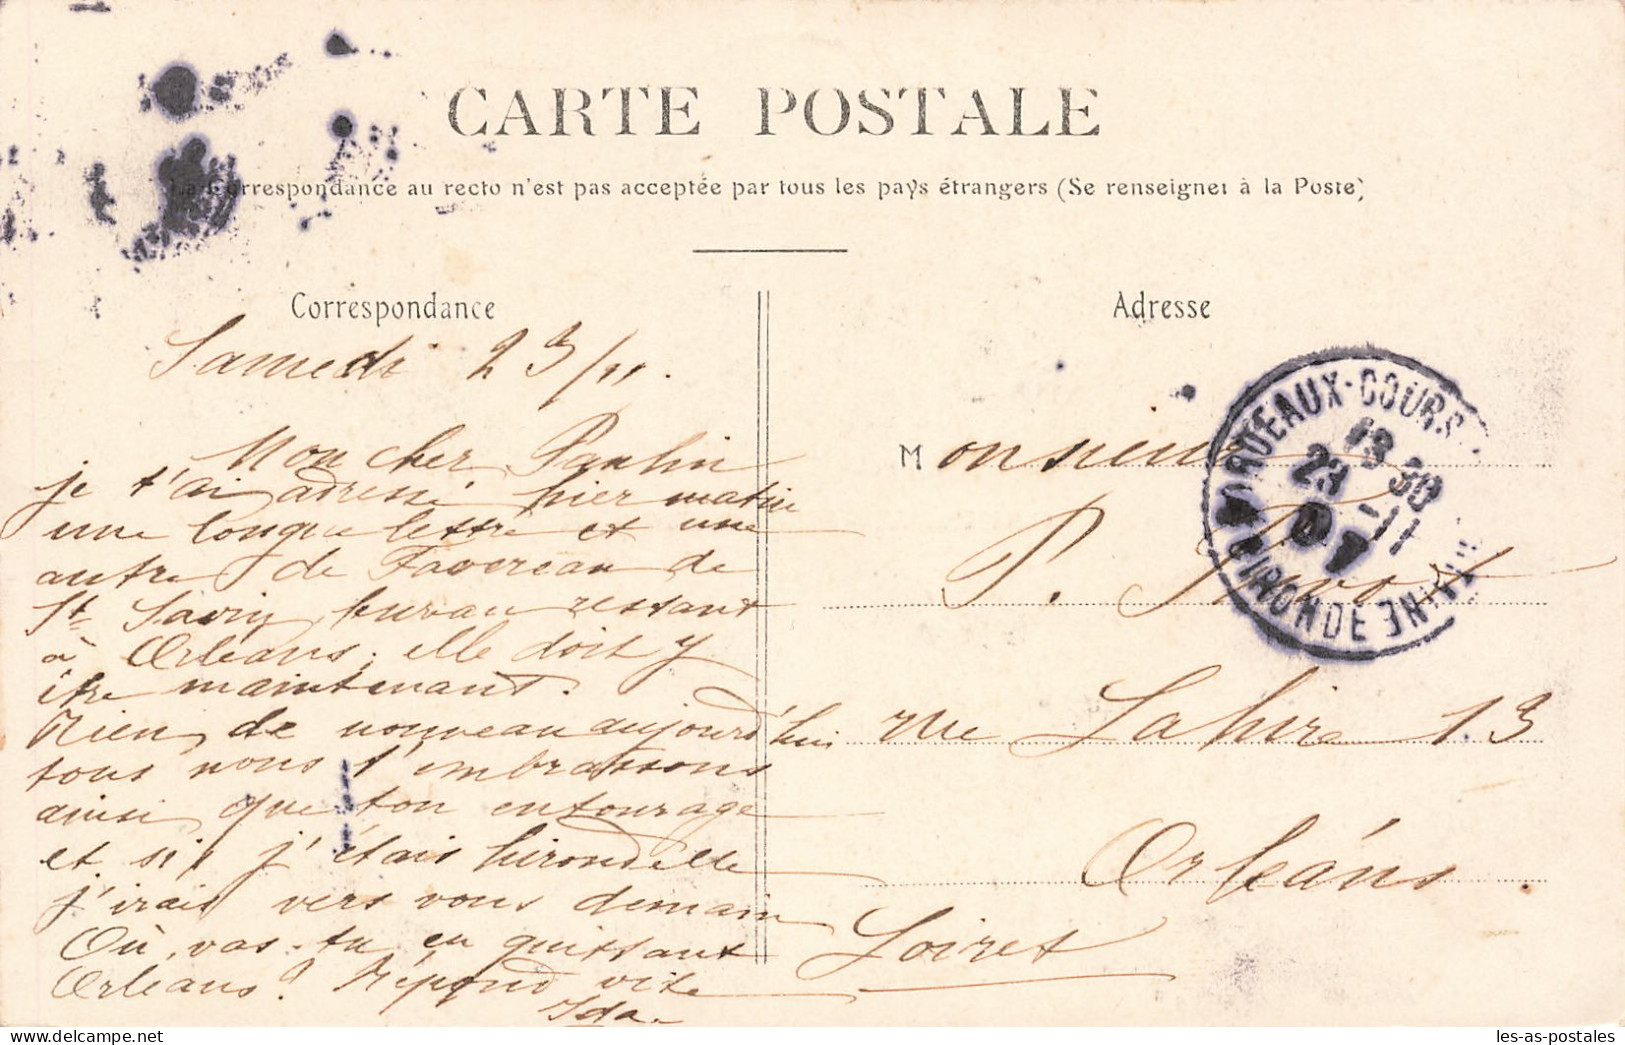 CARTE POSTALE
La Correspondance au recto n'est pas acceptée par tous les pays étrangers (Se renseigner à la Poste)
Correspondance
Samedi 23/11.
Mon cher Paulin
je t'ai adressé hier matin
une longue lettre et une
autre de Favereau de
St Savin, bureau restant
à Orléans; elle doit y
être maintenant.
Rien de nouveau aujourd'hui
tous nous t'embrassons
ainsi que ton entourage
et si j'étais hirondelle
j'irais vers vous demain
Où vas-tu en quittant
Orléans? Répond vite
Ida
Adresse
Monsieur
P.
rue Lahire 13
Orléans.
Loiret
BORDEAUX-COURS
13 30
23 - 11
07
GIRONDE
les-as-postales